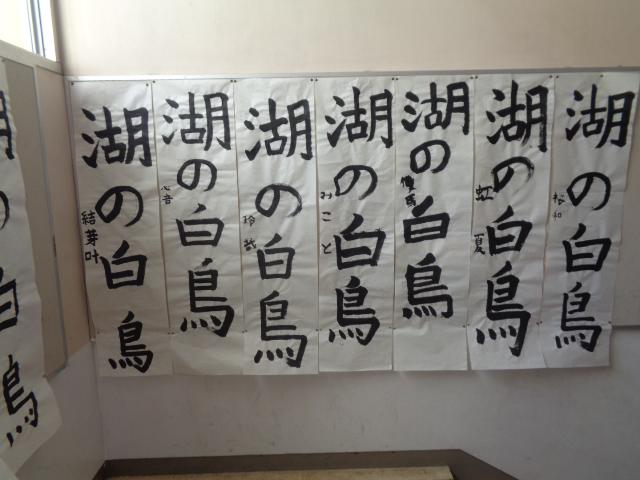 湖の白鳥
結芽叶
湖の白鳥
心音
湖の白鳥
湖の白鳥
みこと
湖の白鳥
湖の白鳥
虹夏
湖の白鳥
湖の白鳥